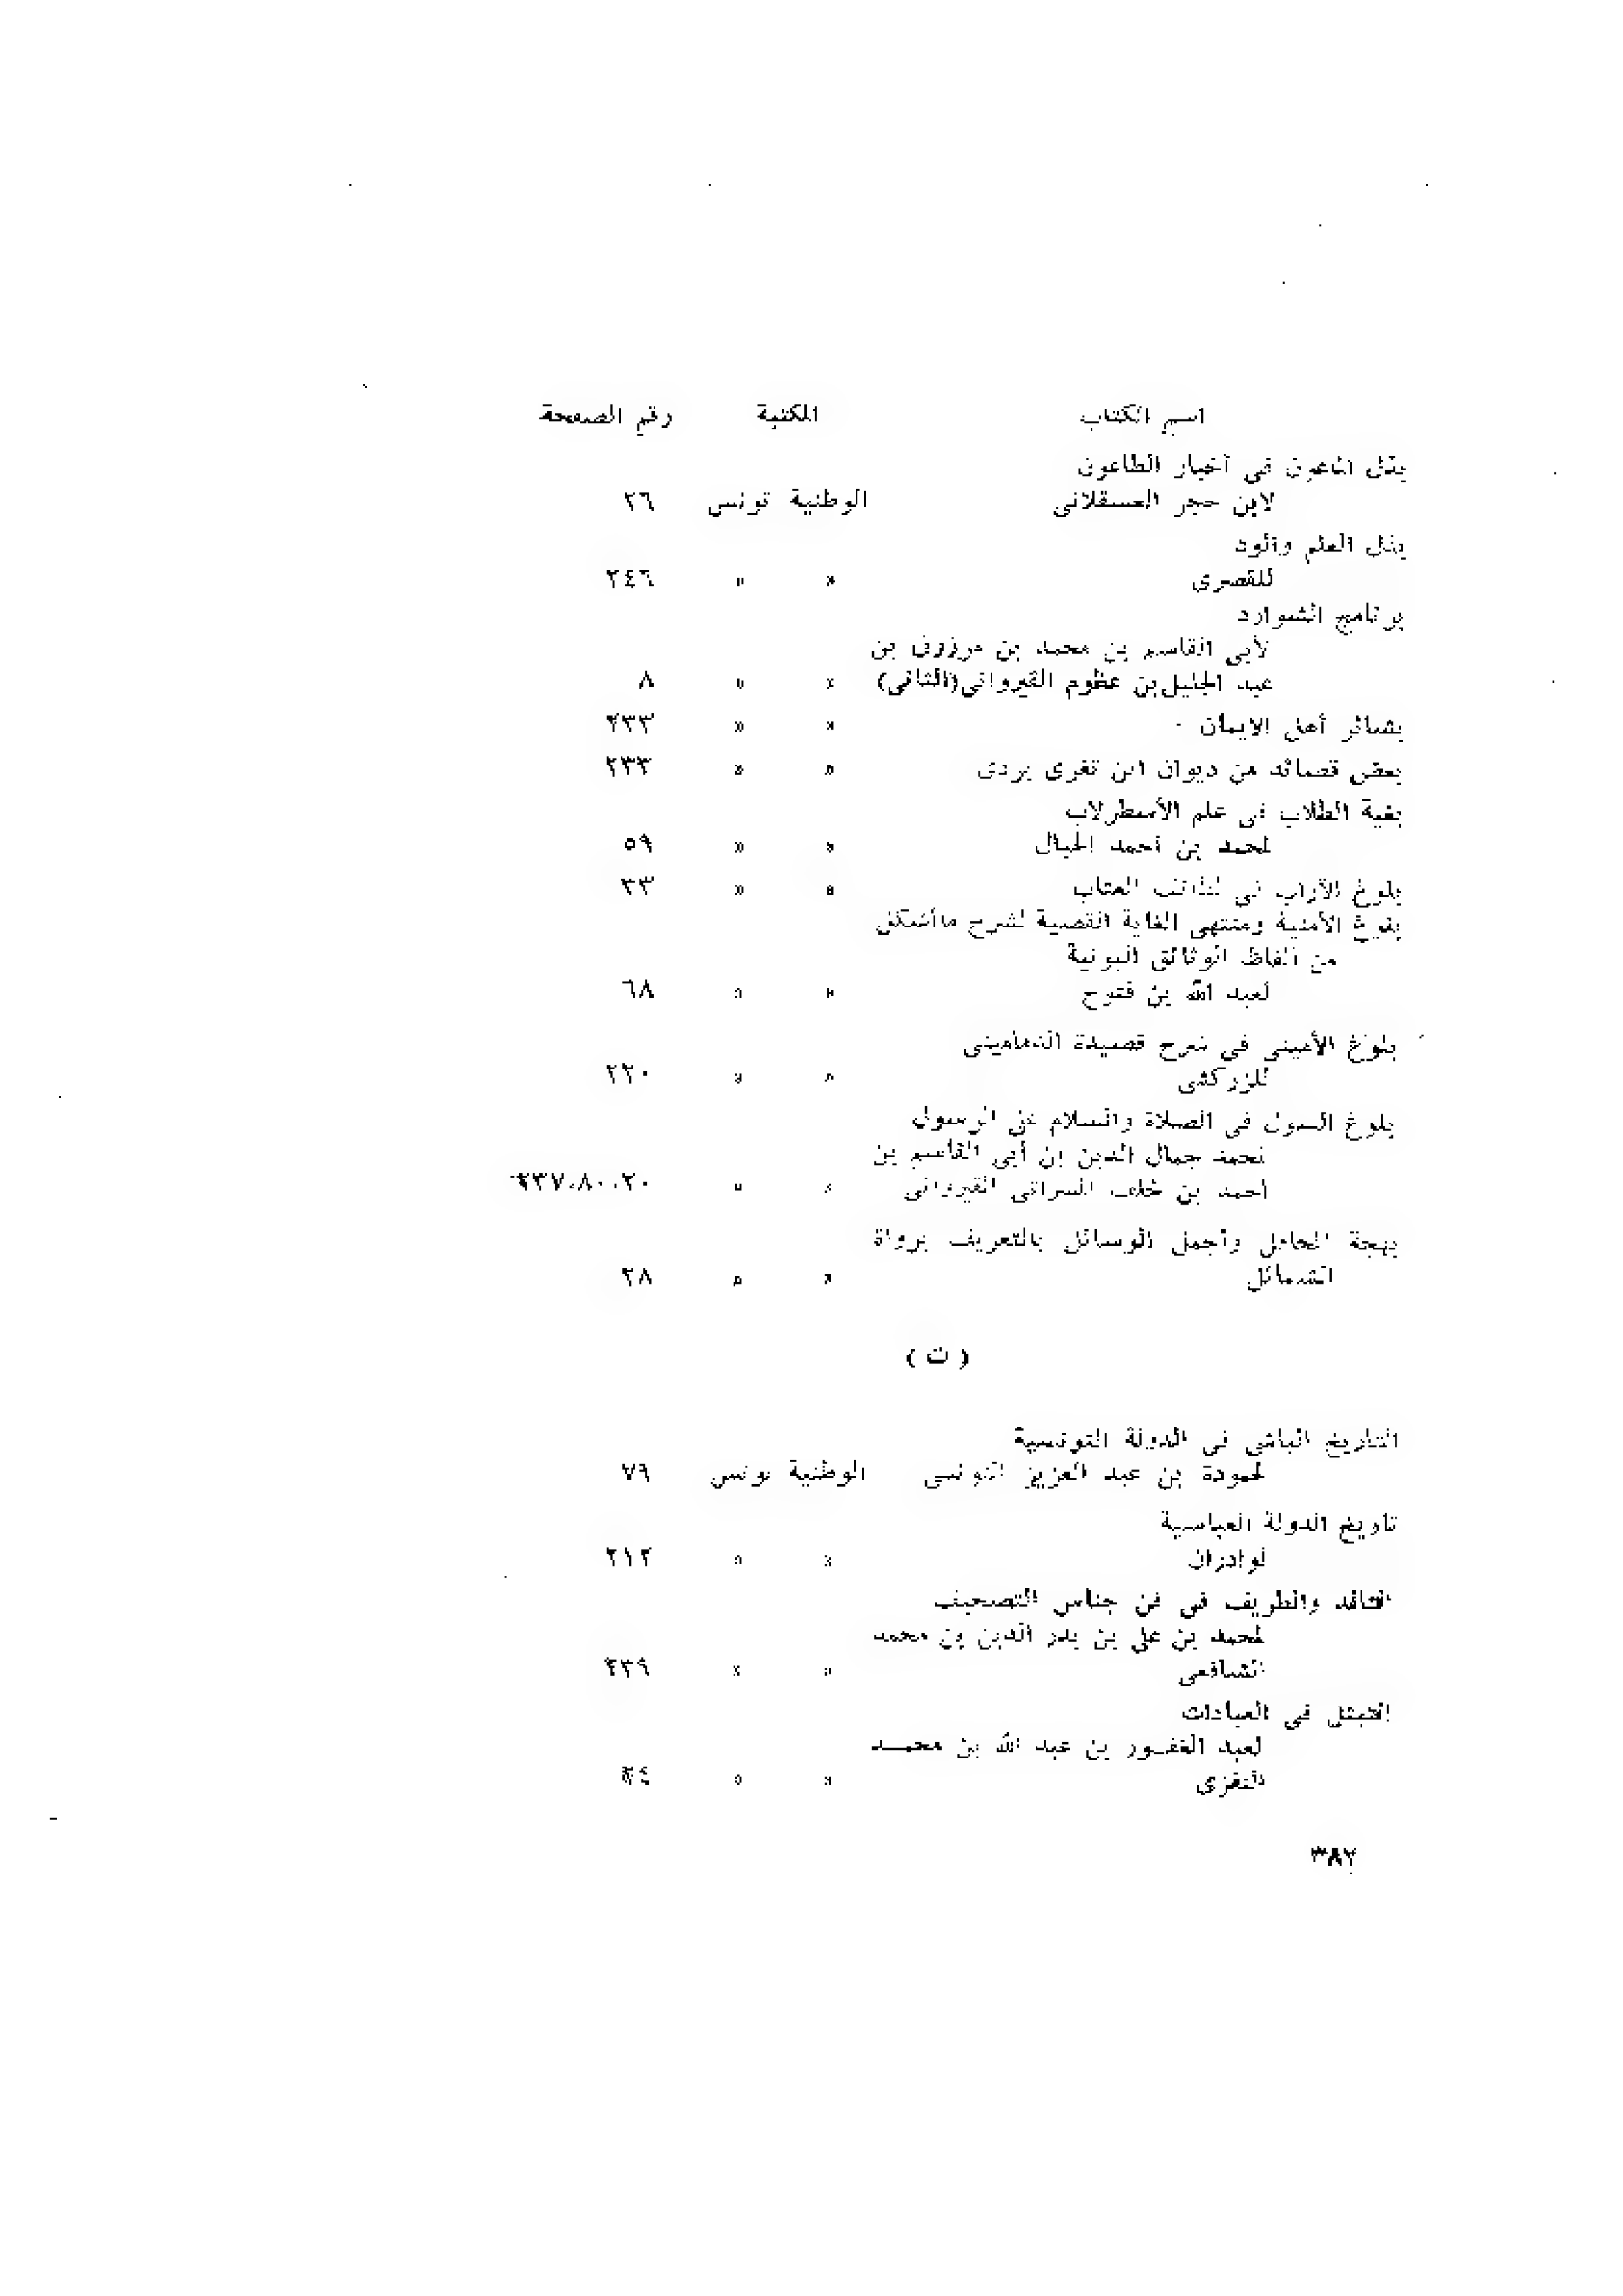 اسم الكتاب المكتبة رقم الصفحة
بذل الماعون في أخبار الطاعون
لابن حجر العسقلاني الوطنية تونس ٢٦
بذل العلم والود
للقصري » » ٢٤٦
برنامج الشوارد
لأبي القاسم بن محمد بن مرزوق بن
عبد الجليل بن عظوم القيرواني (الثاني) » » ٨
بشائر أهل الايمان » » ٢٣٣
بعض قصائد من ديوان ابن تغرى بردى » » ٢٣٣
بغية الطلاب في علم الأسطرلاب
لمحمد بن أحمد الحبال » » ٥٩
بلوغ الآراب في لذائذ العتاب » » ٢٣
بلوغ الأمنية ومنتهى الغاية القصية لشرح ماأشكل
من ألفاظ الوثائق البونية
لعبد الله بن فتوح » » ٦٨
بلوغ الأميني في شرح قصيدة الدماميني
للزركشي » » ٢٢٠
بلوغ السول في الصلاة والسلام على الرسول
لمحمد جمال الدين بن أبي القاسم بن
أحمد بن خلف المسراتي القيرواني » » ٢٣٧،٨٠،٢٠
بهجة المحافل وأجمل الوسائل بالتعريف برواة
الشمائل » » ٢٨
( ت )
التاريخ الباشي في الدولة التونسية
لحمودة بن عبد العزيز التونسي الوطنية تونس ٧٩
تاريخ الدولة العباسية
لوادران » » ٢١٢
التالد والطريف في فن جناس التصحيف
لمحمد بن علي بن بدر الدين بن محمد
الشافعي » » ٢٣٩
التبتل في العبادات
لعبد الغفور بن عبد الله بن محمد
النفزي » »
٣٨٢